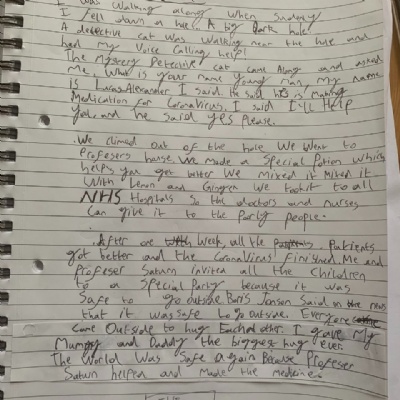 I was walking along when suddenly
I fell down a hole. A big Dark hole!
A detective cat was walking near the hole and
had my Voice Calling, help!
The Mystery Detective cat came Along and asked
Me, What is your name young man, my name
is Lucas Alexander I said. he said he's making
Medication for Coronavirus, I said I'll Help
you, and he said yes Please.
We climed out of the hole We Went to
Profesers house. We made a Special Potion which
helps you get bitter We mixed it Mixed it
With Lemon and Gingren We took it to all
NHS Hospitals So the doctors and nurses
Can give it to the Party people.
After one week, all the Patients
got better and the Coronavirus finished. Me and
Profeser Saturn invited all the Children
to a Special Party because it was
Safe to go outside. Boris Jonson Said on the news
that it was safe to go outside. Everyone
Came Outside to hug Each other. I gave My
Mummy and Daddy the biggest hug ever.
The World Was Safe again Because Profeser
Saturn helped and Made the medicine.